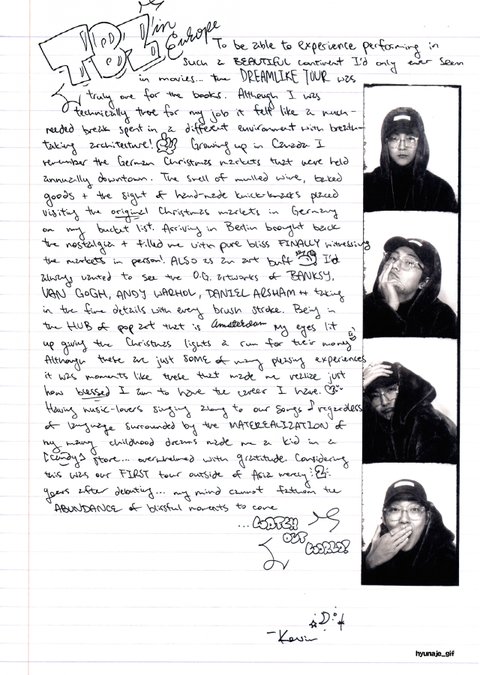 TBZ in Europe
To be able to experience performing in
such a BEAUTIFUL continent I'd only ever seen
in movies... the DREAMLIKE TOUR was
truly one for the books. Although I was
technically there for my job it felt like a much-
needed break spent in a different environment with breath-
taking architecture! Growing up in Canada I
remember the German Christmas markets that were held
annually downtown. The smell of mulled wine, baked
goods + the sight of hand-made knick-knacks placed
visiting the original Christmas markets in Germany
on my bucket list. Arriving in Berlin brought back
the nostalgia + filled me with pure bliss FINALLY witnessing
the markets in person! ALSO as an art buff I'd
always wanted to see the O.G. artworks of BANKSY,
VAN GOGH, ANDY WARHOL, DANIEL ARSHAM + taking
in the fine details with every brush stroke. Being in
the HUB of pop art that is Amsterdam my eyes lit
up giving the Christmas lights a run for their money
Although these are just SOME of many pleasing experiences
it was moments like these that made me realize just
how blessed I am to have the career I have.
Having music-lovers singing along to our songs regardless
of language surrounded by the MATEREALIZATION of
my many childhood dreams made me a kid in a
candy store... overwhelmed with gratitude. Considering
this was our FIRST tour outside of Asia merely 2
years after debuting... my mind cannot fathom the
ABUNDANCE of blissful moments to come
...WATCH
OUT
WORLD!
-Kevin
hyunaje_gif